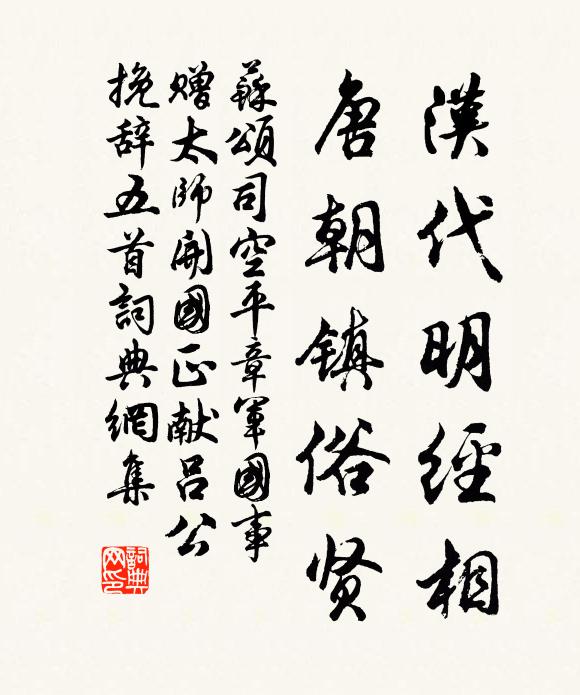 漢代明經相
唐朝镇俗贤
蘇頌司空平章軍國事
贈太師開國正献吕公
挽辞五首詞典網集
詞典网印